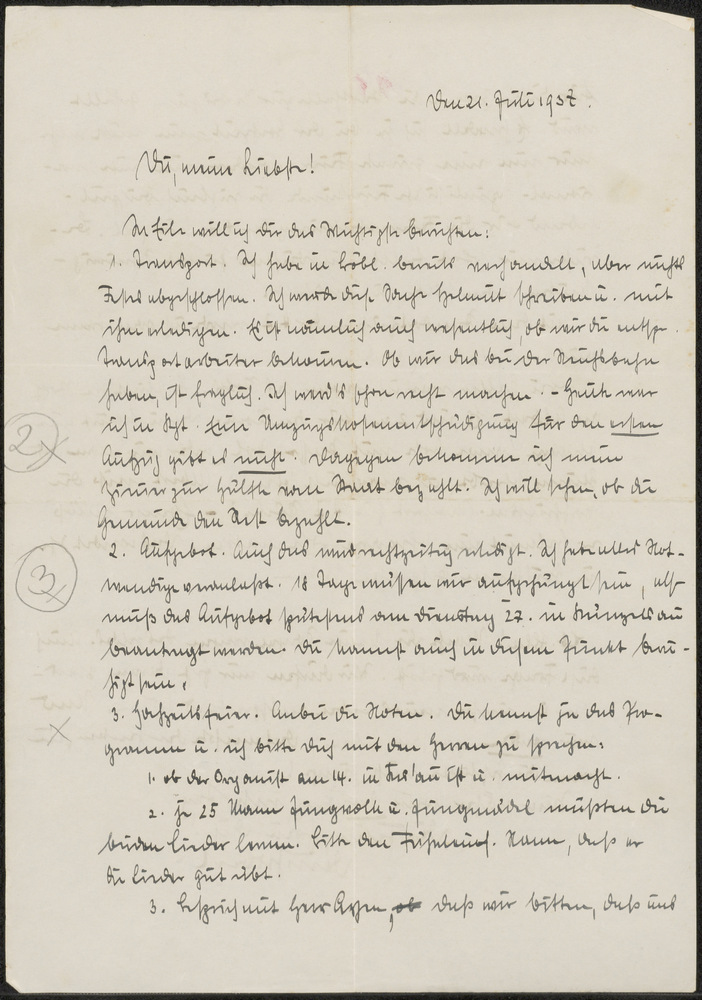 Den 21. Juli 1937.
Du, meine Liebste!
In Eile will ich dir das Wichtigste berichten:
1. Transport. Ich habe in Löbl. bereits verhandelt, aber nichts
Festes abgeschlossen. Ich werde diese Sache Helmutt schreiben u. mit
ihm erledigen. Es ist nämlich auch wesentlich, ob wir die entspr.
Transportarbeiter bekommen. Ob wir das bei der Reichsbahn
haben, ist fraglich. Ich werd's schon recht machen. – Heute war
ich in Stgt. Eine Umzugskostenentschädigung für den ersten
Aufzug gibt es nicht. Dagegen bekomme ich mein
Zimmer zur Hälfte vom Staat bezahlt. Ich will sehen, ob die
Gemeinde den Rest bezahlt.
2. Aufgebot. Auch das wird rechtzeitig erledigt. Ich habe alles Not-
wendige veranlaßt. 18 Tage müssen wir aufgehängt sein, also
muß das Aufgebot spätestens am Dienstag 27. in Künzelsau
beantragt werden. Du kannst auch in diesem Punkt beru-
higt sein.
3. Hochzeitsfeier. Anbei die Noten. Du kennst ja das Pro-
gramm u. ich bitte dich mit den Herren zu sprechen:
1. ob der Organist am 14. in ist u. mitmacht.
2. je 25 Mann Jungvolk u. Jungmädel müßten die
beiden Lieder lernen. Bitte den Mann, daß er
die Lieder gut übt.
3. Besprich mit Herr , ob daß wir bitten, daß uns
2
3